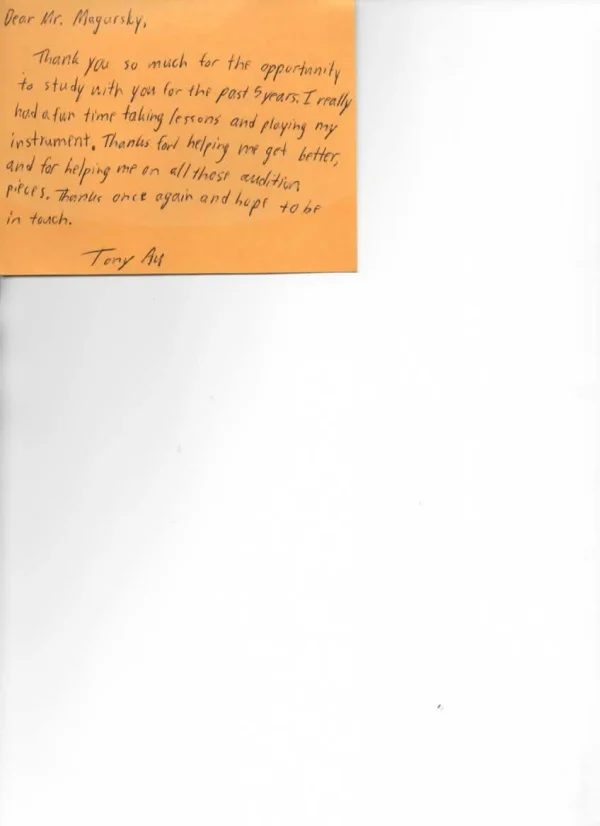 Dear Mr. Magursky,
Thank you so much for the opportunity
to study with you for the past 5 years. I really
had a fun time taking lessons and playing my
instrument. Thanks for helping me get better,
and for helping me on all those audition
pieces. Thanks once again and hope to be
in touch.
Tony Au